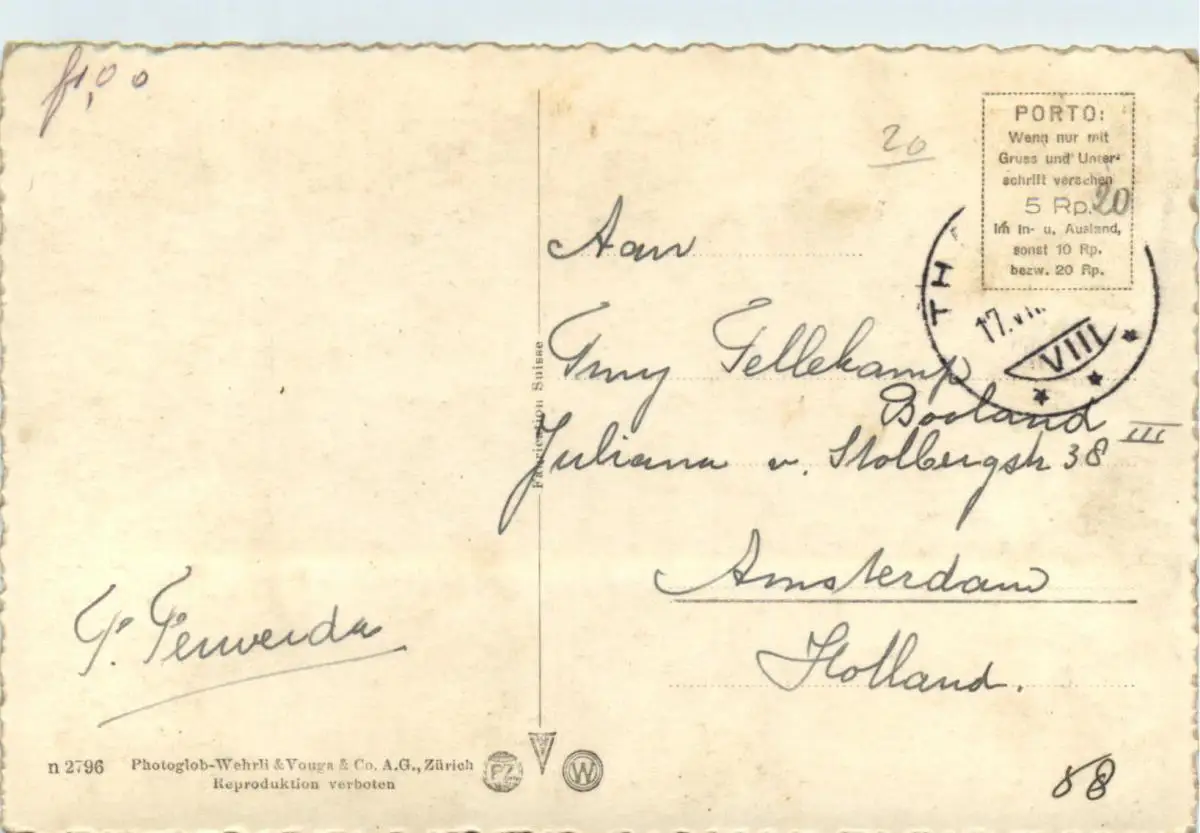 f1,00
20
PORTO:
Wenn nur mit
Gruss und Unter-
schrift versehen
5 Rp. 20
im In- u. Ausland,
sonst 10 Rp.
bezw. 20 Rp.
TH
17.VII
VIII
Aan
Tellekamp
Booland
Juliana v. Stolbergstr 38 III
Amsterdam
Holland.
Fabrication Suisse
n 2796
Photoglob-Wehrli & Vouga & Co. A.G., Zürich
Reproduktion verboten
PZ
W
58